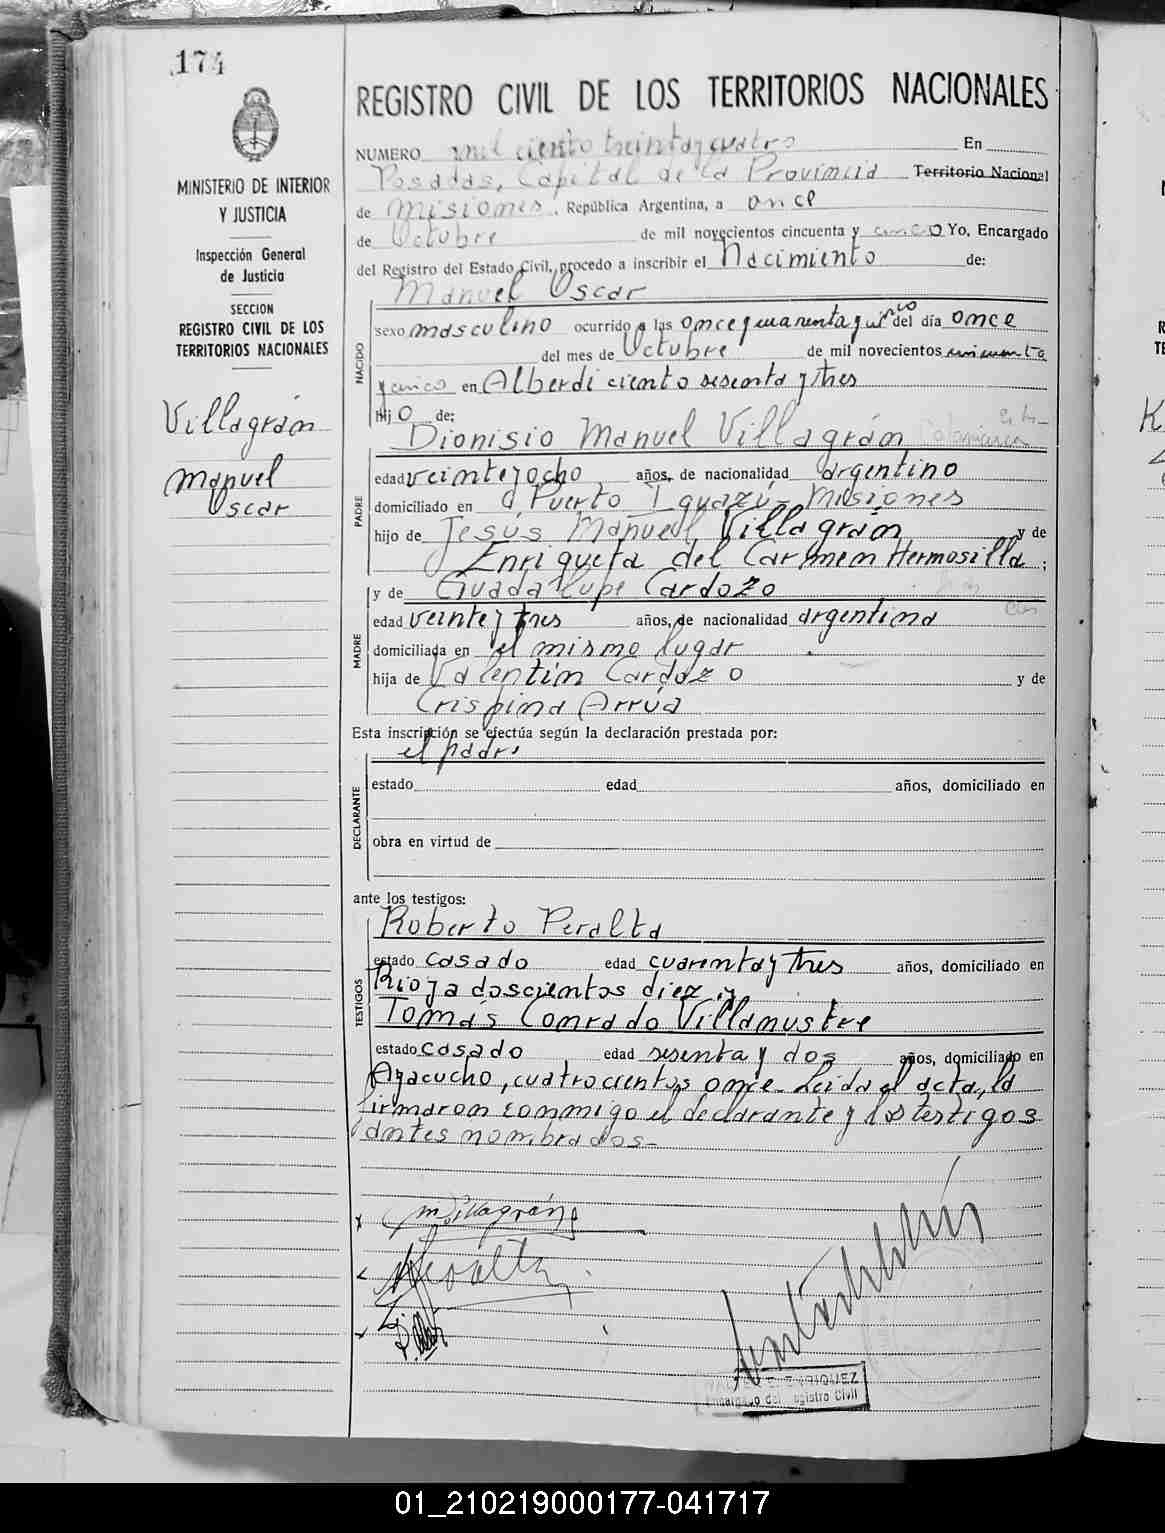 174
MINISTERIO DE INTERIOR
Y JUSTICIA
Inspección General
de Justicia
SECCION
REGISTRO CIVIL DE LOS
TERRITORIOS NACIONALES
Villagrán
Manuel
Oscar
REGISTRO CIVIL DE LOS TERRITORIOS NACIONALES
NUMERO mil ciento treinta y cuatro En
Posadas, Capital de la Provincia Territorio Nacional
de Misiones, República Argentina, a once
de Octubre de mil novecientos cincuenta y cinco Yo, Encargado
del Registro del Estado Civil, procedo a inscribir el Nacimiento de:
Manuel Oscar
NACIDO
sexo masculino ocurrido a las once y cuarenta y cinco del día once
del mes de Octubre de mil novecientos cincuenta
y cinco en Alberdi ciento sesenta y tres
hijo de:
Dionisio Manuel Villagrán
PADRE
edad veinte y ocho años, de nacionalidad argentino
domiciliado en Puerto Iguazú - Misiones
hijo de Jesús Manuel Villagrán y de
Enriqueta del Carmen Hermosilla;
y de Guadalupe Cardozo
MADRE
edad veinte y tres años, de nacionalidad argentina
domiciliada en el mismo lugar
hija de Valentín Cardozo y de
Crispina Arrúa
Esta inscripción se efectúa según la declaración prestada por:
el padre
DECLARANTE
estado edad años, domiciliado en
obra en virtud de
ante los testigos:
Roberto Peralta
TESTIGOS
estado casado edad cuarenta y tres años, domiciliado en
Rioja doscientos diez y
Tomás Conrado Villamustre
estado casado edad sesenta y dos años, domiciliado en
Ayacucho, cuatrocientos once. Leída el acta, la
firmaron conmigo el declarante y los testigos
antes nombrados-
M. Villagrán
Peralta
Encargado del Registro Civil
01_210219000177-041717